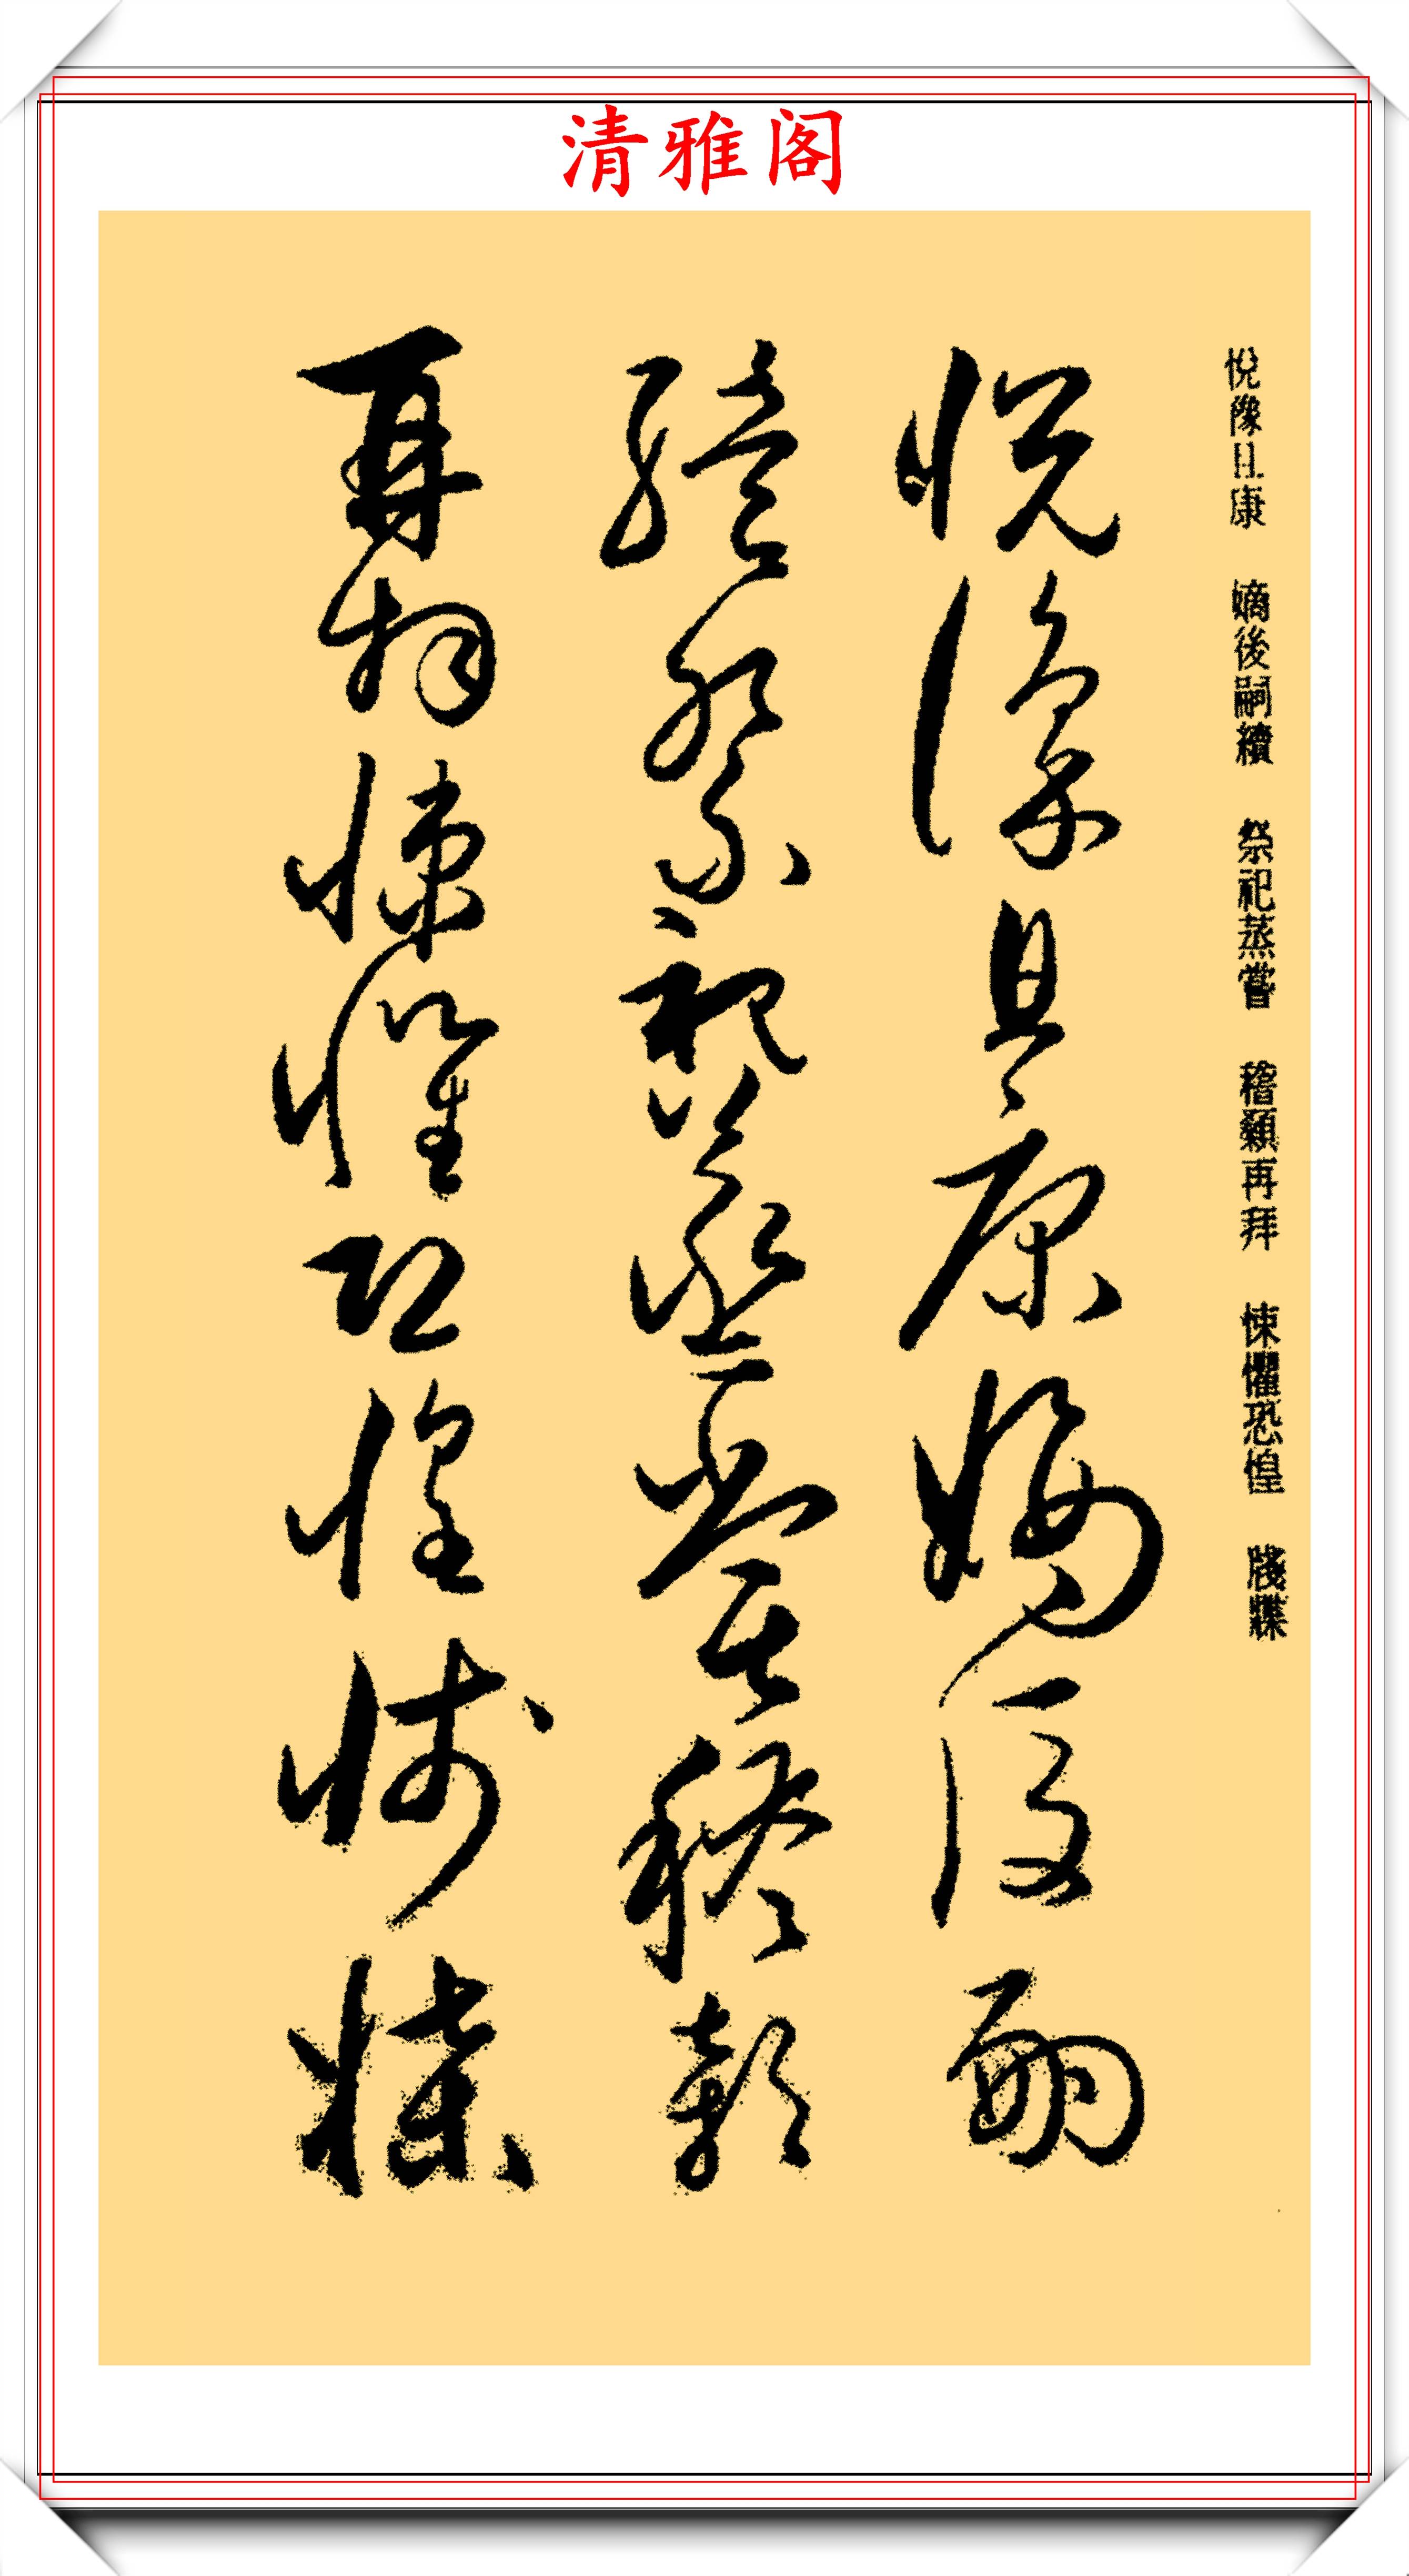 清雅阁
悅豫且康 嫡後嗣續 祭祀蒸嘗 稽顙再拜 悚懼恐惶 牋牒
悅豫且康嫡後嗣
續祭祀蒸嘗稽顙
再拜悚懼恐惶牋牒